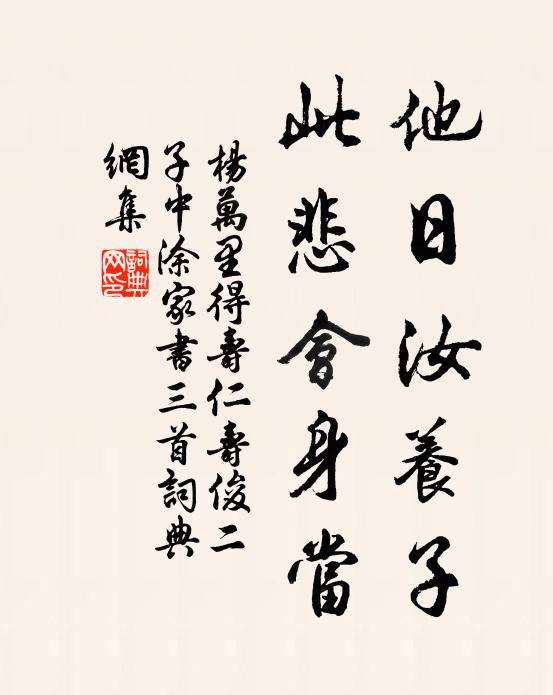 他日汝養子
此悲會身當
楊萬里得壽仁壽俊二
子中涂家書三首詞典
網集
詞典網印